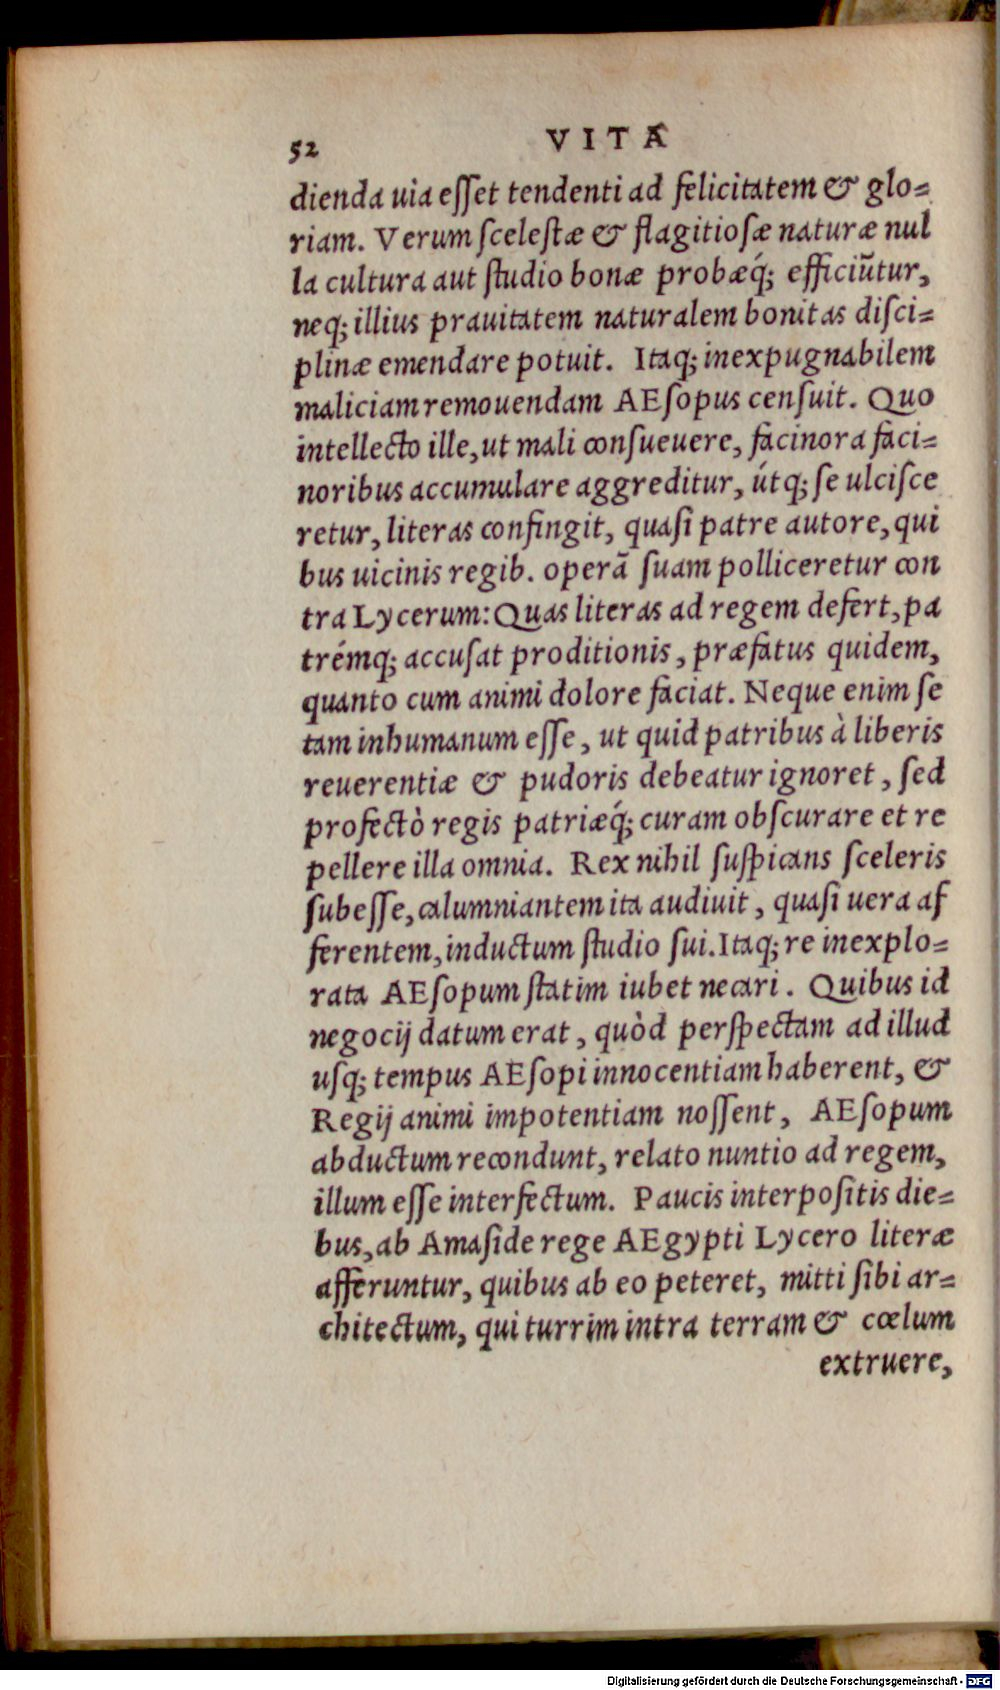 52 VITA
dienda uia eſſet tendenti ad felicitatem & glo=
riam. Verum ſceleſtæ & flagitioſæ naturæ nul
la cultura aut ſtudio bonæ probæq́; efficiūtur,
neq; illius prauitatem naturalem bonitas diſci=
plinæ emendare potuit. Itaq; inexpugnabilem
maliciam remouendam AEſopus cenſuit. Quo
intellecto ille, ut mali conſueuere, facinora faci=
noribus accumulare aggreditur, útq; ſe ulciſce
retur, literas confingit, quaſi patre autore, qui
bus uicinis regib. operā ſuam polliceretur con
tra Lycerum: Quas literas ad regem defert, pa
trémq; accuſat proditionis, præfatus quidem,
quanto cum animi dolore faciat. Neque enim ſe
tam inhumanum eſſe, ut quid patribus à liberis
reuerentiæ & pudoris debeatur ignoret, ſed
profectò regis patriæq́; curam obſcurare et re
pellere illa omnia. Rex nihil ſuſpicans ſceleris
ſubeſſe, calumniantem ita audiuit, quaſi uera af
ferentem, inductum ſtudio ſui. Itaq; re inexplo=
rata AEſopum ſtatim iubet necari. Quibus id
negocij datum erat, quòd perſpectam ad illud
uſq; tempus AEſopi innocentiam haberent, &
Regij animi impotentiam noſſent, AEſopum
abductum recondunt, relato nuntio ad regem,
illum eſſe interfectum. Paucis interpoſitis die=
bus, ab Amaſide rege AEgypti Lycero literæ
afferuntur, quibus ab eo peteret, mitti ſibi ar=
chitectum, qui turrim intra terram & cœlum
extruere,
Digitalisierung gefördert durch die Deutsche Forschungsgemeinschaft - DFG